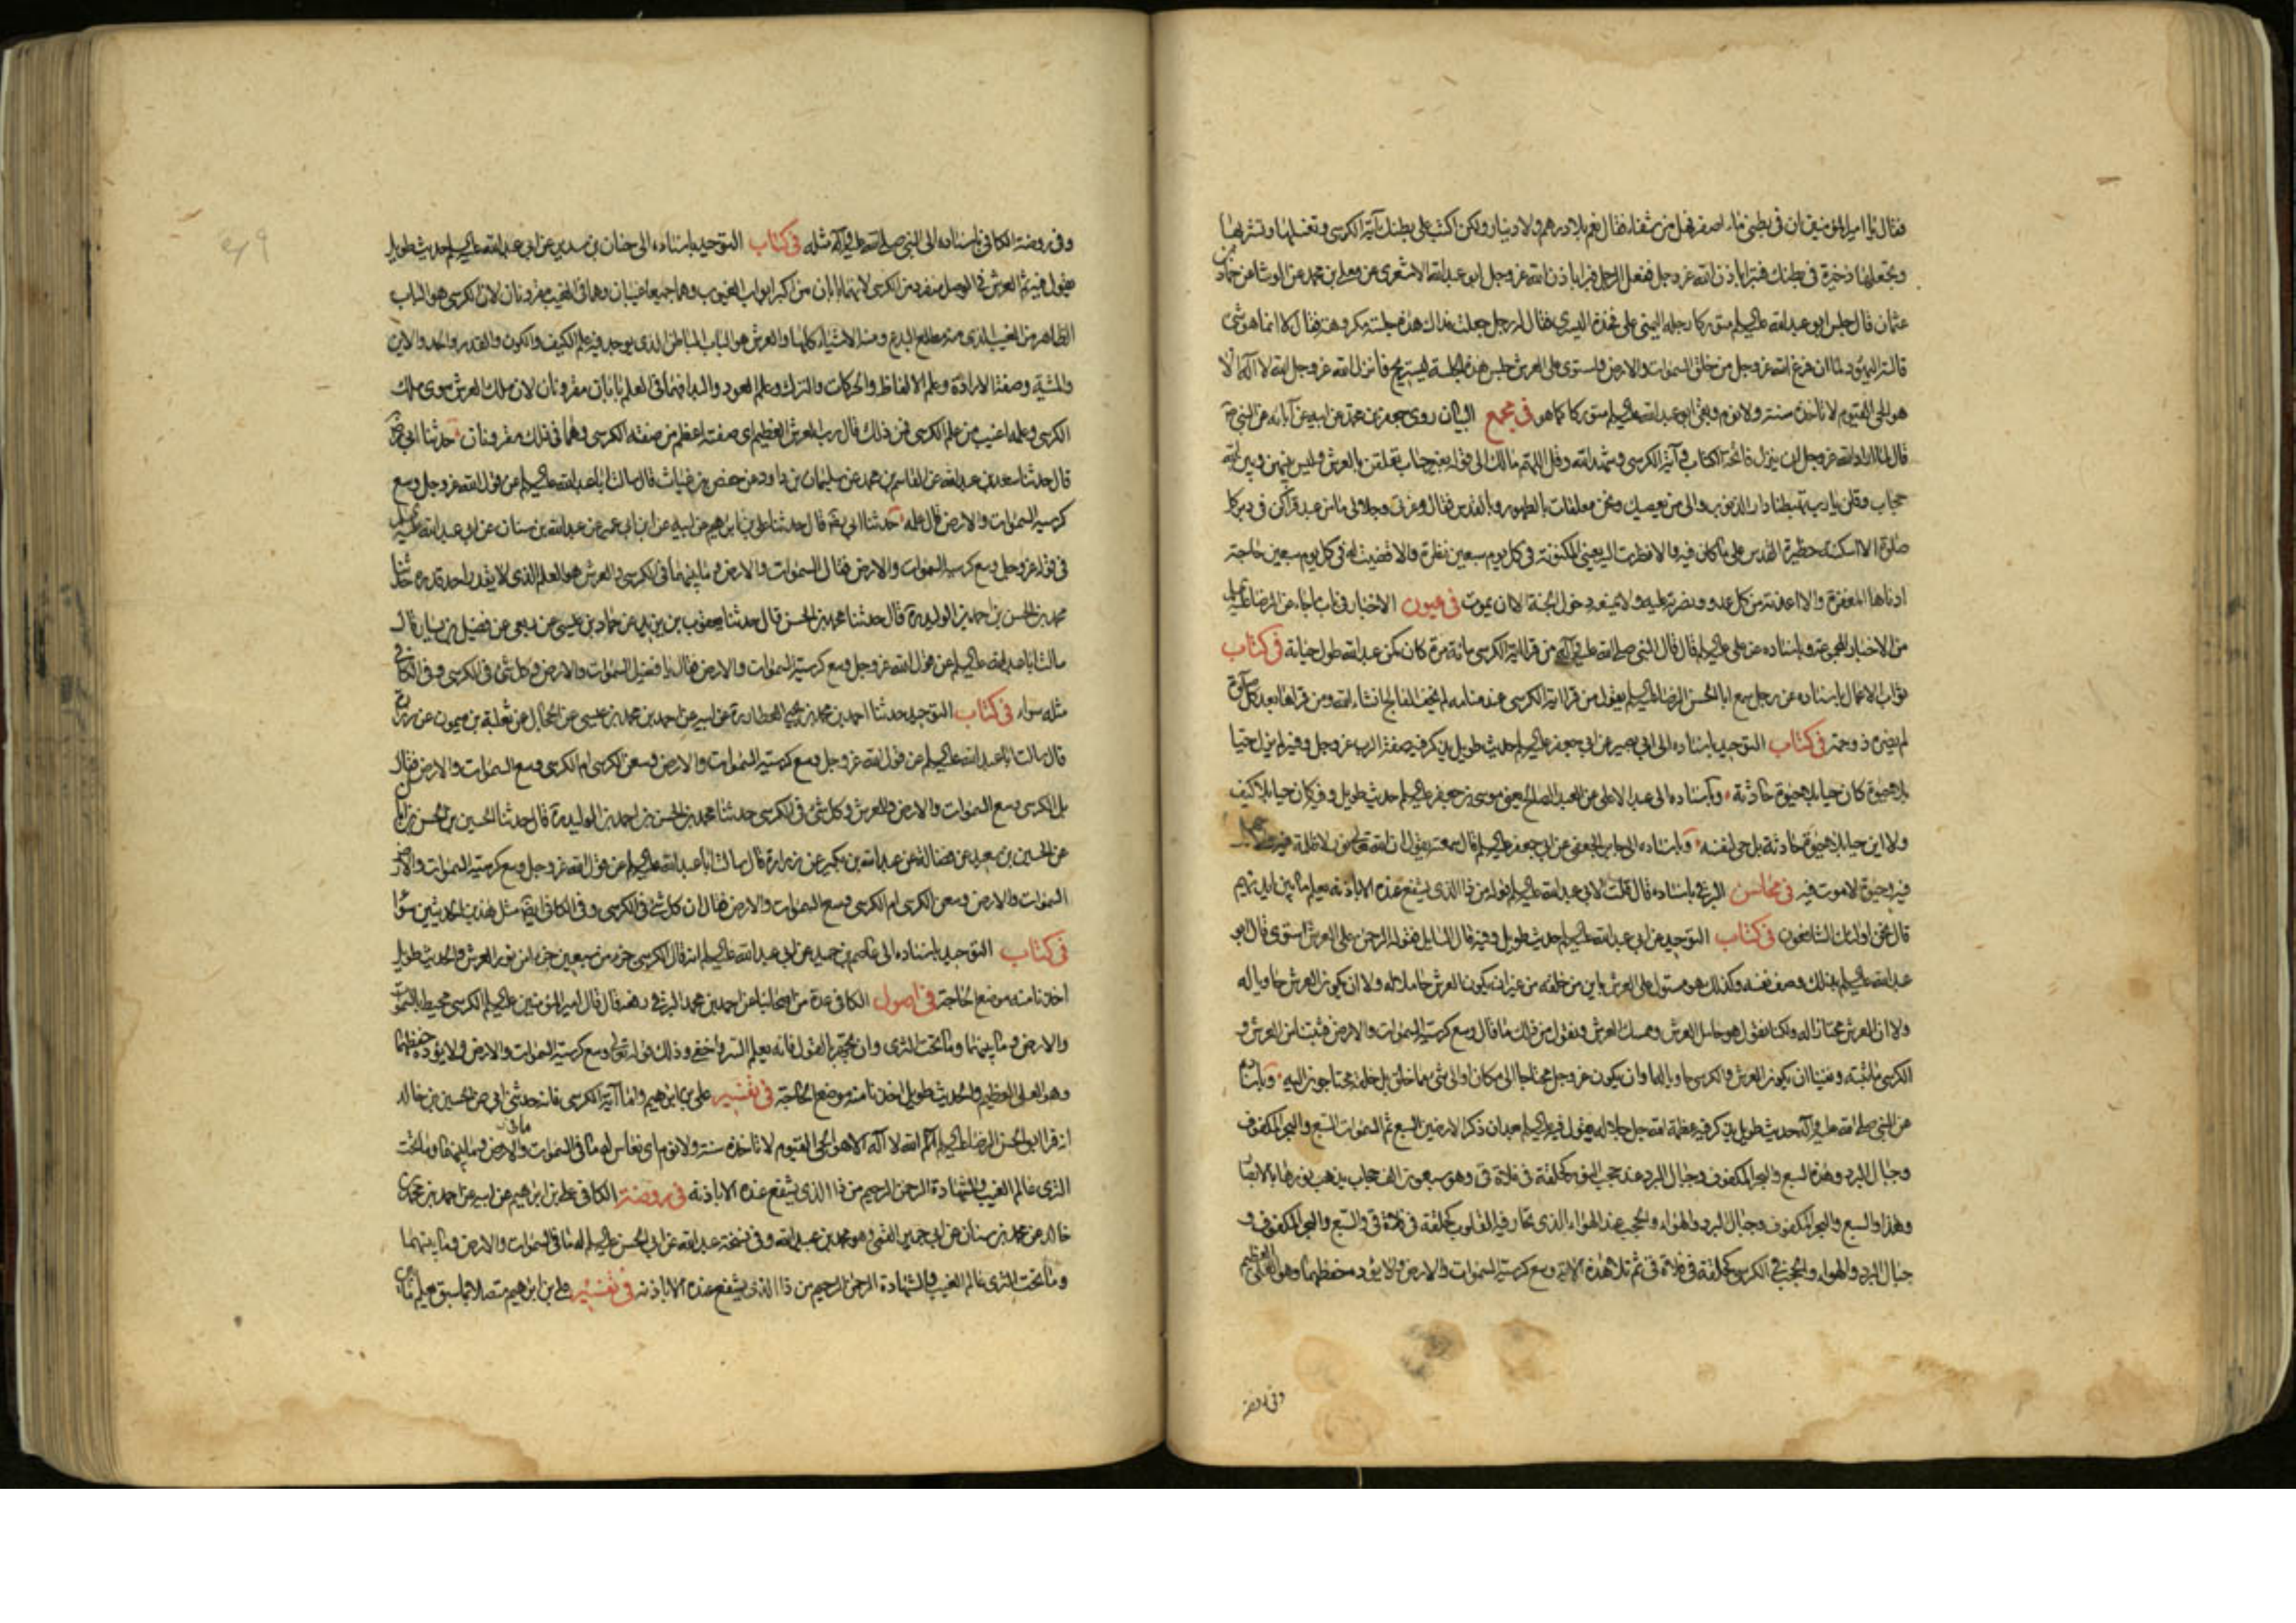 فقال يا امير المؤمنين ان في بطني ماء اصفر فهل من شفاء فقال نعم بلا درهم ولا دينار ولكن اكتب على بطنك آية الكرسي وتغسلها وتشربها
وتجعلها ذخيرة في بطنك فتبرا باذن الله عز وجل ففعل الرجل فبرا باذن الله عز وجل ابو عبد الله الاشعري عن معلى بن محمد عن الوشا عن حماد بن
عثمان قال جلس ابو عبد الله عليه السلم متوركا رجله اليمنى على فخذه اليسرى فقال له رجل جعلت فداك هذه جلسة مكروهة فقال لا انما هو شئ
قالته اليهود لما ان فرغ الله عز وجل من خلق السموات والارض واستوى على العرش جلس هذه الجلسة ليستريح فانزل الله عز وجل الله لا اله الا
هو الحي القيوم لا تاخذه سنة ولا نوم وبقي ابو عبد الله عليه السلم متوركا كما هو في مجمع البيان روى جعفر بن محمد عن ابيه عن آبائه عن النبي ص
قال لما اراد الله عز وجل ان ينزل فاتحة الكتاب وآية الكرسي وشهد الله وقل اللهم مالك الى قوله بغير حساب تعلقن بالعرش وليس بينهن وبين الله
حجاب وقلن يا رب تهبطنا دار الذنوب والى من يعصيك ونحن معلقات بالطهور وبالقدس فقال وعزتي وجلالي ما من عبد قراكن في دبر كل
صلوة الا اسكنته حظيرة القدس على ما كان فيه والا نظرت اليه بعيني المكنونة في كل يوم سبعين نظرة والا قضيت له في كل يوم سبعين حاجة
ادناها المغفرة والا اعذته من كل عدو ونصرته عليه ولا يمنعه دخول الجنة الا ان يموت في عيون الاخبار في باب ما جاء عن الرضا عليه السلم
من الاخبار المجموعة وباسناده عن علي عليه السلم قال قال النبي صلى الله عليه وآله من قرا آية الكرسي مائة مرة كان كمن عبد الله طول حياته في كتاب
ثواب الاعمال باسناده عن رجل سمع ابا الحسن الرضا عليه السلم يقول من قرا آية الكرسي عند منامه لم يخف الفالج انشاء الله ومن قراها بعد كل صلوة
لم يضره ذو حمة في كتاب التوحيد باسناده الى ابي بصير عن ابي جعفر عليه السلم حديث طويل يذكر فيه صفة الرب عز وجل وفيه لم يزل حيا
بلا حيوة كان حيا بلا حيوة حادثة وباسناده الى عبد الاعلى عن العبد الصالح يعني موسى بن جعفر عليه السلم حديث طويل وفيه كان حيا بلا كيف
ولا اين حيا بلا حيوة حادثة بل حي لنفسه وباسناده الى جابر الجعفي عن ابي جعفر عليه السلم قال سمعته يقول ان الله نور لا ظلمة فيه
فيه وحيوة لا موت فيه في محاسن البرقي باسناده قال قلت لابي عبد الله عليه السلم قوله من ذا الذي يشفع عنده الا باذنه يعلم ما بين ايديهم
قال نحن اولئك الشافعون في كتاب التوحيد عن ابي عبد الله عليه السلم حديث طويل وفيه قال السايل فقوله الرحمن على العرش استوى قال ابو
عبد الله عليه السلم بذلك وصف نفسه وكذلك هو مستول على العرش باين من خلقه من غير ان يكون العرش حاملا له ولا ان يكون العرش حاويا له
ولا ان العرش محتازا له ولكنا نقول هو حامل العرش وممسك العرش ونقول من ذلك ما قال وسع كرسيه السموات والارض فثبتنا من العرش و
الكرسي ما ثبته ونفينا ان يكون العرش والكرسي حاويا له وان يكون عز وجل محتاجا الى مكان او الى شئ مما خلق بل خلقه محتاجون اليه وباسناده
عن النبي صلى الله عليه وآله حديث طويل يذكر فيه عظمة الله جل جلاله يقول فيه عليه السلم بعد ان ذكر الارضين السبع ثم السموات السبع والبحر المكفوف
وجبال البرد وهذه السبع والبحر المكفوف وجبال البرد عند حجب النور كحلقة في فلاة قي وهو سبعون الف حجاب يذهب نورها بالابصار
وهذا والسبع والبحر المكفوف وجبال البرد والهواء والحجب عند الهواء الذي تحار فيه القلوب كحلقة في فلاة قي والسبع والبحر المكفوف و
جبال البرد والهواء والحجب في الكرسي كحلقة في فلاة قي ثم تلا هذه الآية وسع كرسيه السموات والارض ولا يؤده حفظهما وهو العلي العظيم
وفي روضة
وفي روضة الكافي باسناده الى النبي صلى الله عليه وآله مثله في كتاب التوحيد باسناده الى حنان بن سدير عن ابي عبد الله عليه السلم حديث طويل
يقول فيه ثم العرش في الوصل منفرد من الكرسي لانهما بابان من اكبر ابواب الغيوب وهما جميعا غيبان وهما في الغيب مقرونان لان الكرسي هو الباب
الظاهر من الغيب الذي منه مطلع البدع ومنه الاشياء كلها والعرش هو الباب الباطن الذي يوجد فيه علم الكيف والكون والقدر والحد والاين
والمشية وصفة الارادة وعلم الالفاظ والحركات والترك وعلم العود والبدا فهما في العلم بابان مقرونان لان ملك العرش سوى ملك
الكرسي وعلمه اغيب من علم الكرسي فمن ذلك قال رب العرش العظيم اي صفته اعظم من صفة الكرسي وهما في ذلك مقرونان حدثنا ابي ره
قال حدثنا سعد بن عبد الله عن القاسم بن محمد عن سليمان بن داود عن حفص بن غياث قال سالت ابا عبد الله عليه السلم عن قول الله عز وجل وسع
كرسيه السموات والارض قال علمه حدثنا ابي ره قال حدثنا علي بن ابراهيم عن ابيه عن ابن ابي عمير عن عبد الله بن سنان عن ابي عبد الله عليه السلم
في قول الله عز وجل وسع كرسيه السموات والارض فقال السموات والارض وما بينهما في الكرسي والعرش هو العلم الذي لا يقدر احد قدره حدثنا
محمد بن الحسن بن احمد بن الوليد ره قال حدثنا محمد بن الحسن قال حدثنا يعقوب بن يزيد عن حماد بن عيسى عن ربعي عن فضيل بن يسار قال
سالت ابا عبد الله عليه السلم عن قول الله عز وجل وسع كرسيه السموات والارض فقال يا فضيل السموات والارض وكل شئ في الكرسي وفي الكافي
مثله سواء في كتاب التوحيد حدثنا احمد بن محمد بن يحيى العطار ره عن ابيه عن احمد بن محمد بن عيسى عن الحجال عن ثعلبة بن ميمون عن زرارة
قال سالت ابا عبد الله عليه السلم عن قول الله عز وجل وسع كرسيه السموات والارض وسعن الكرسي ام الكرسي وسع السموات والارض فقال
بل الكرسي وسع السموات والارض والعرش وكل شئ في الكرسي حدثنا محمد بن الحسن بن احمد بن الوليد ره قال حدثنا الحسين بن الحسن بن ابان
عن الحسين بن سعيد عن فضالة عن عبد الله بن بكير عن زرارة قال سالت ابا عبد الله عليه السلم عن قول الله عز وجل وسع كرسيه السموات والارض
السموات والارض وسعن الكرسي ام الكرسي وسع السموات والارض فقال ان كل شئ في الكرسي وفي الكافي ايضا مثل هذين الحديثين سواء
في كتاب التوحيد باسناده الى عاصم بن حميد عن ابي عبد الله عليه السلم انه قال الكرسي جزء من سبعين جزءا من نور العرش والحديث طويل
اخذنا منه موضع الحاجة في اصول الكافي عدة من اصحابنا عن احمد بن محمد البرقي رفعه قال قال امير المؤمنين عليه السلم الكرسي محيط بالسموات
والارض وما بينهما وما تحت الثرى وان تجهر بالقول فانه يعلم السر واخفى وذلك قوله تعالى وسع كرسيه السموات والارض ولا يؤده حفظهما
وهو العلي العظيم والحديث طويل اخذنا منه موضع الحاجة في تفسير علي بن ابراهيم واما آية الكرسي فانه حدثني ابي عن الحسين بن خالد
انه قرا ابو الحسن الرضا عليه السلم الم الله لا اله الا هو الحي القيوم لا تاخذه سنة ولا نوم اي نعاس له ما في السموات وما في الارض وما بينهما وما تحت
الثرى عالم الغيب والشهادة الرحمن الرحيم من ذا الذي يشفع عنده الا باذنه في روضة الكافي علي بن ابراهيم عن ابيه عن احمد بن محمد عن
خالد عن محمد بن سنان عن ابي جرير القمي وهو محمد بن عبيد الله وفي نسخة عبد الله عن ابي الحسن عليه السلم له ما في السموات والارض وما بينهما
وما تحت الثرى عالم الغيب والشهادة الرحمن الرحيم من ذا الذي يشفع عنده الا باذنه في تفسير علي بن ابراهيم متصلا بما سبق يعلم ما بين